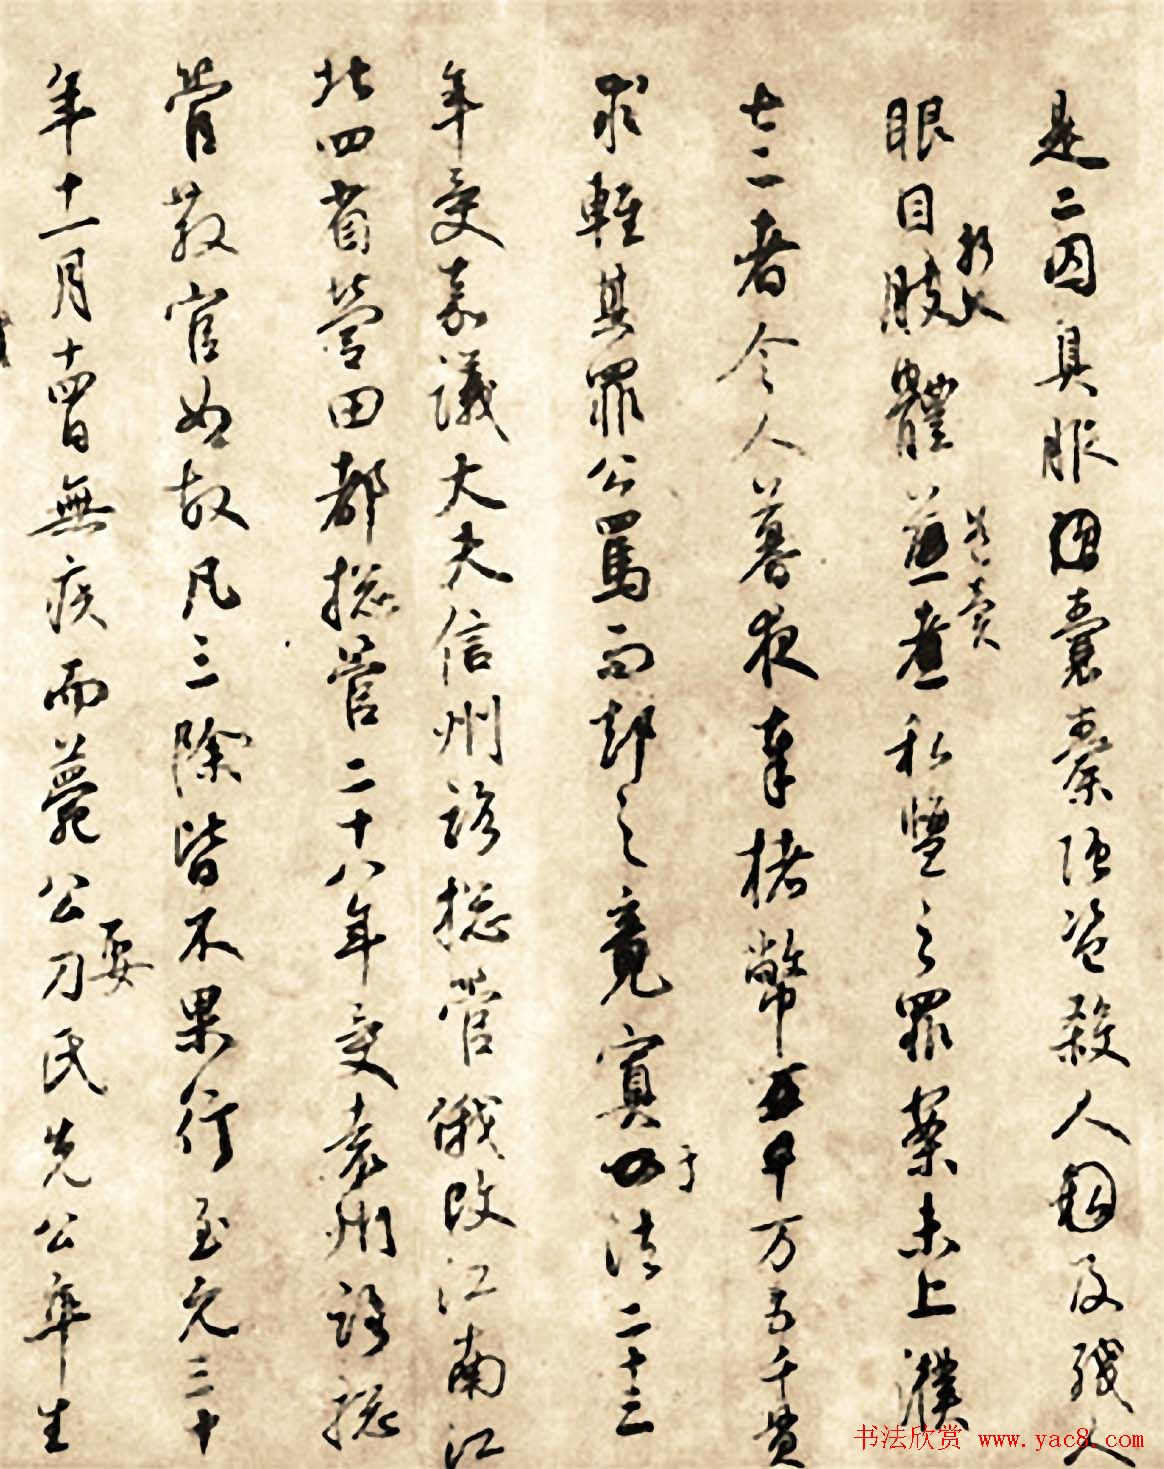 是二囚具服囊橐强盗殺人及殘人
眼目肢體折人煮私鹽之罪案未上濮
七二者令人暮夜奉楮幣万五千貫
求輕其罪公罵而却之竟寘于法二十三
年受嘉議大夫信州路揔管俄改江南江
北四省營田都揔管二十八年受袁州路揔
管散官如故凡三除皆不果行至元三十
年十一月十四日無疾而薨公娶刀氏先公卒生
书法欣赏 www.yac8.com